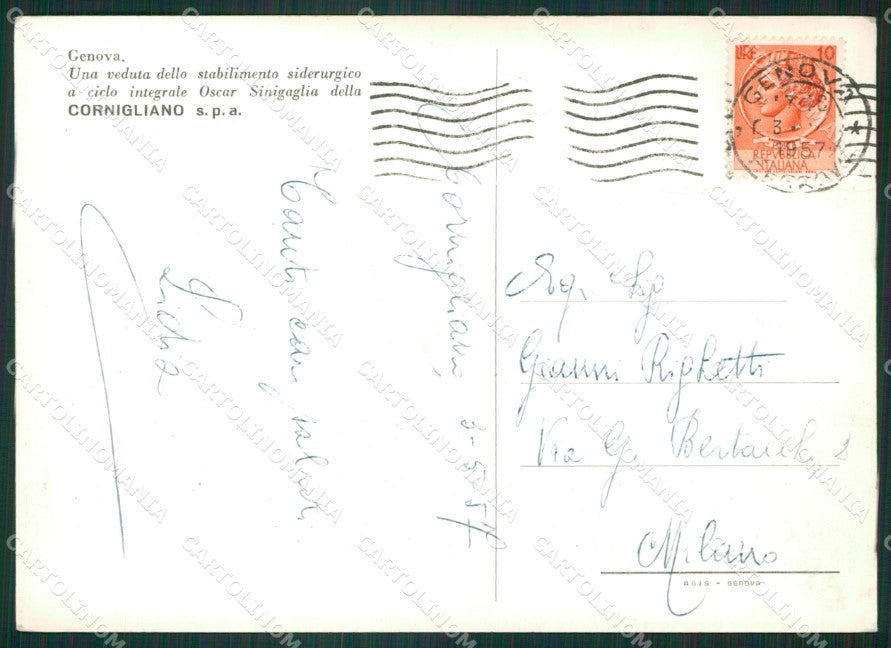 Genova.
Una veduta dello stabilimento siderurgico
a ciclo integrale Oscar Sinigaglia della
CORNIGLIANO s.p.a.
LIRE 10
REPVBBLICA
ITALIANA
GENOVA
3
1957
Cornigliano, 3-5-57
Tanti cari saluti
Lidia
Egr. Sig
Gianni Righetti
Via G. 2
Milano
AGIS - Genova
CARTOLINOMANIA